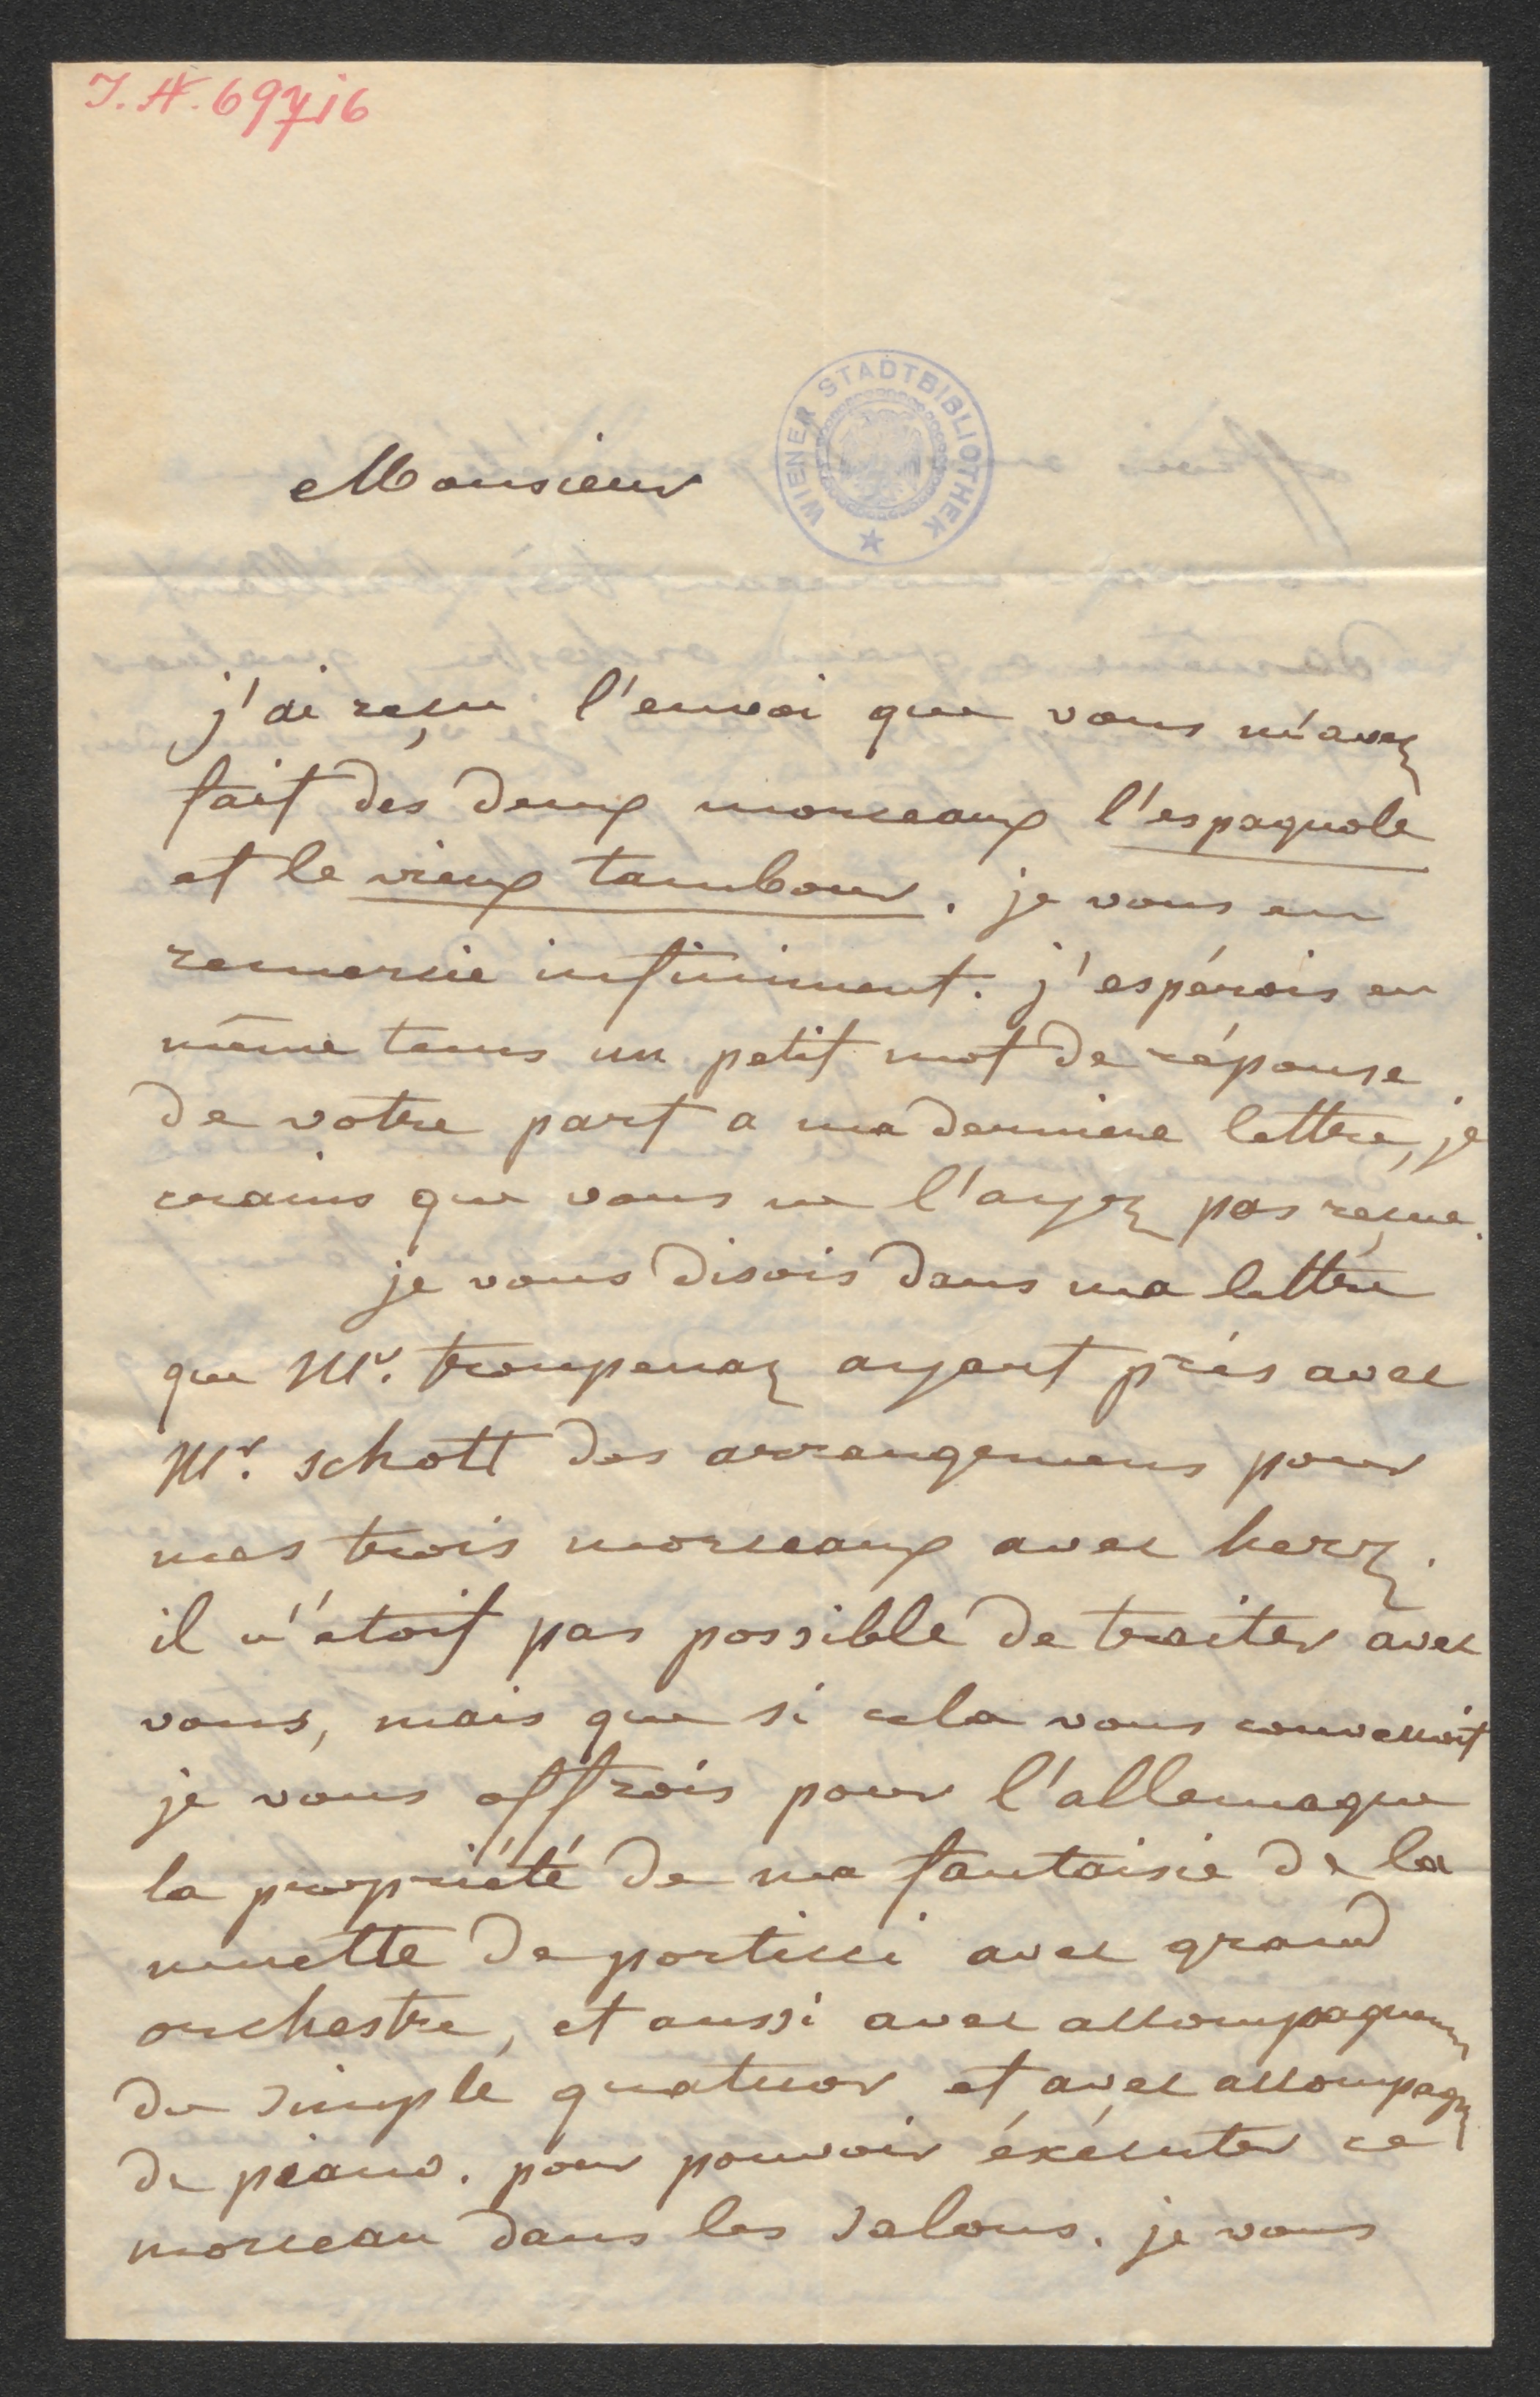 I.N. 69716
WIENER STADTBIBLIOTHEK
Monsieur
j'ai reçu l'envoi que vous m'avez
fait des deux morceaux l'espagnole
et le vieux tambour. je vous en
remercie infiniment. j'espérois en
même tems un petit mot de réponse
de votre part a ma derniere lettre, je
crains que vous ne l'ayez pas reçue.
je vous disois dans ma lettre
que Mr. troupenaz ayant pris avec
Mr. schott des arrangemens pour
mes trois morceaux avec herz.
il n'étoit pas possible de traiter avec
vous, mais que si cela vous convenoit
je vous offrois pour l'allemagne
la propriété de ma fantaisie de la
muette de portici avec grand
orchestre, et aussi avec accompagnem
de simple quatuor et avec accompagn
de piano. pour pouvoir éxécuter ce
morceau dans les salons. je vous